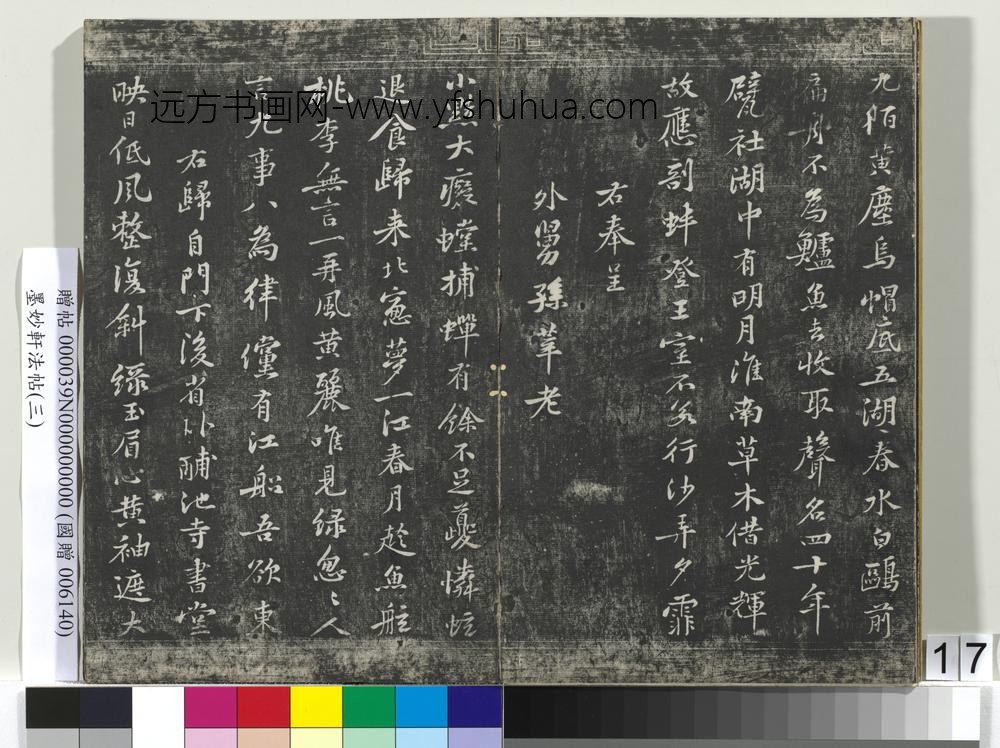 远方书画网-www.yfshuhua.com
九陌黄塵烏帽底五湖春水白鷗前
扁舟不為鱸魚去收取聲名四十年
甓社湖中有明月淮南草木借光輝
故應剖蚌登王室不若行沙弄夕霏
右奉呈
外舅孫莘老
小黠大癡螳捕蟬有餘不足夔憐蚿
退食歸来北窓夢一江春月趂魚船
桃李無言一再風黄麗唯見緑怱〻人
言九事八為律儻有江船吾欲東
右歸自門下後省卧酺池寺書堂
映日低風整復斜緑玉眉心黄袖遮大
贈帖 000039N000000000 (國贈 006140)
墨妙軒法帖(三)
17